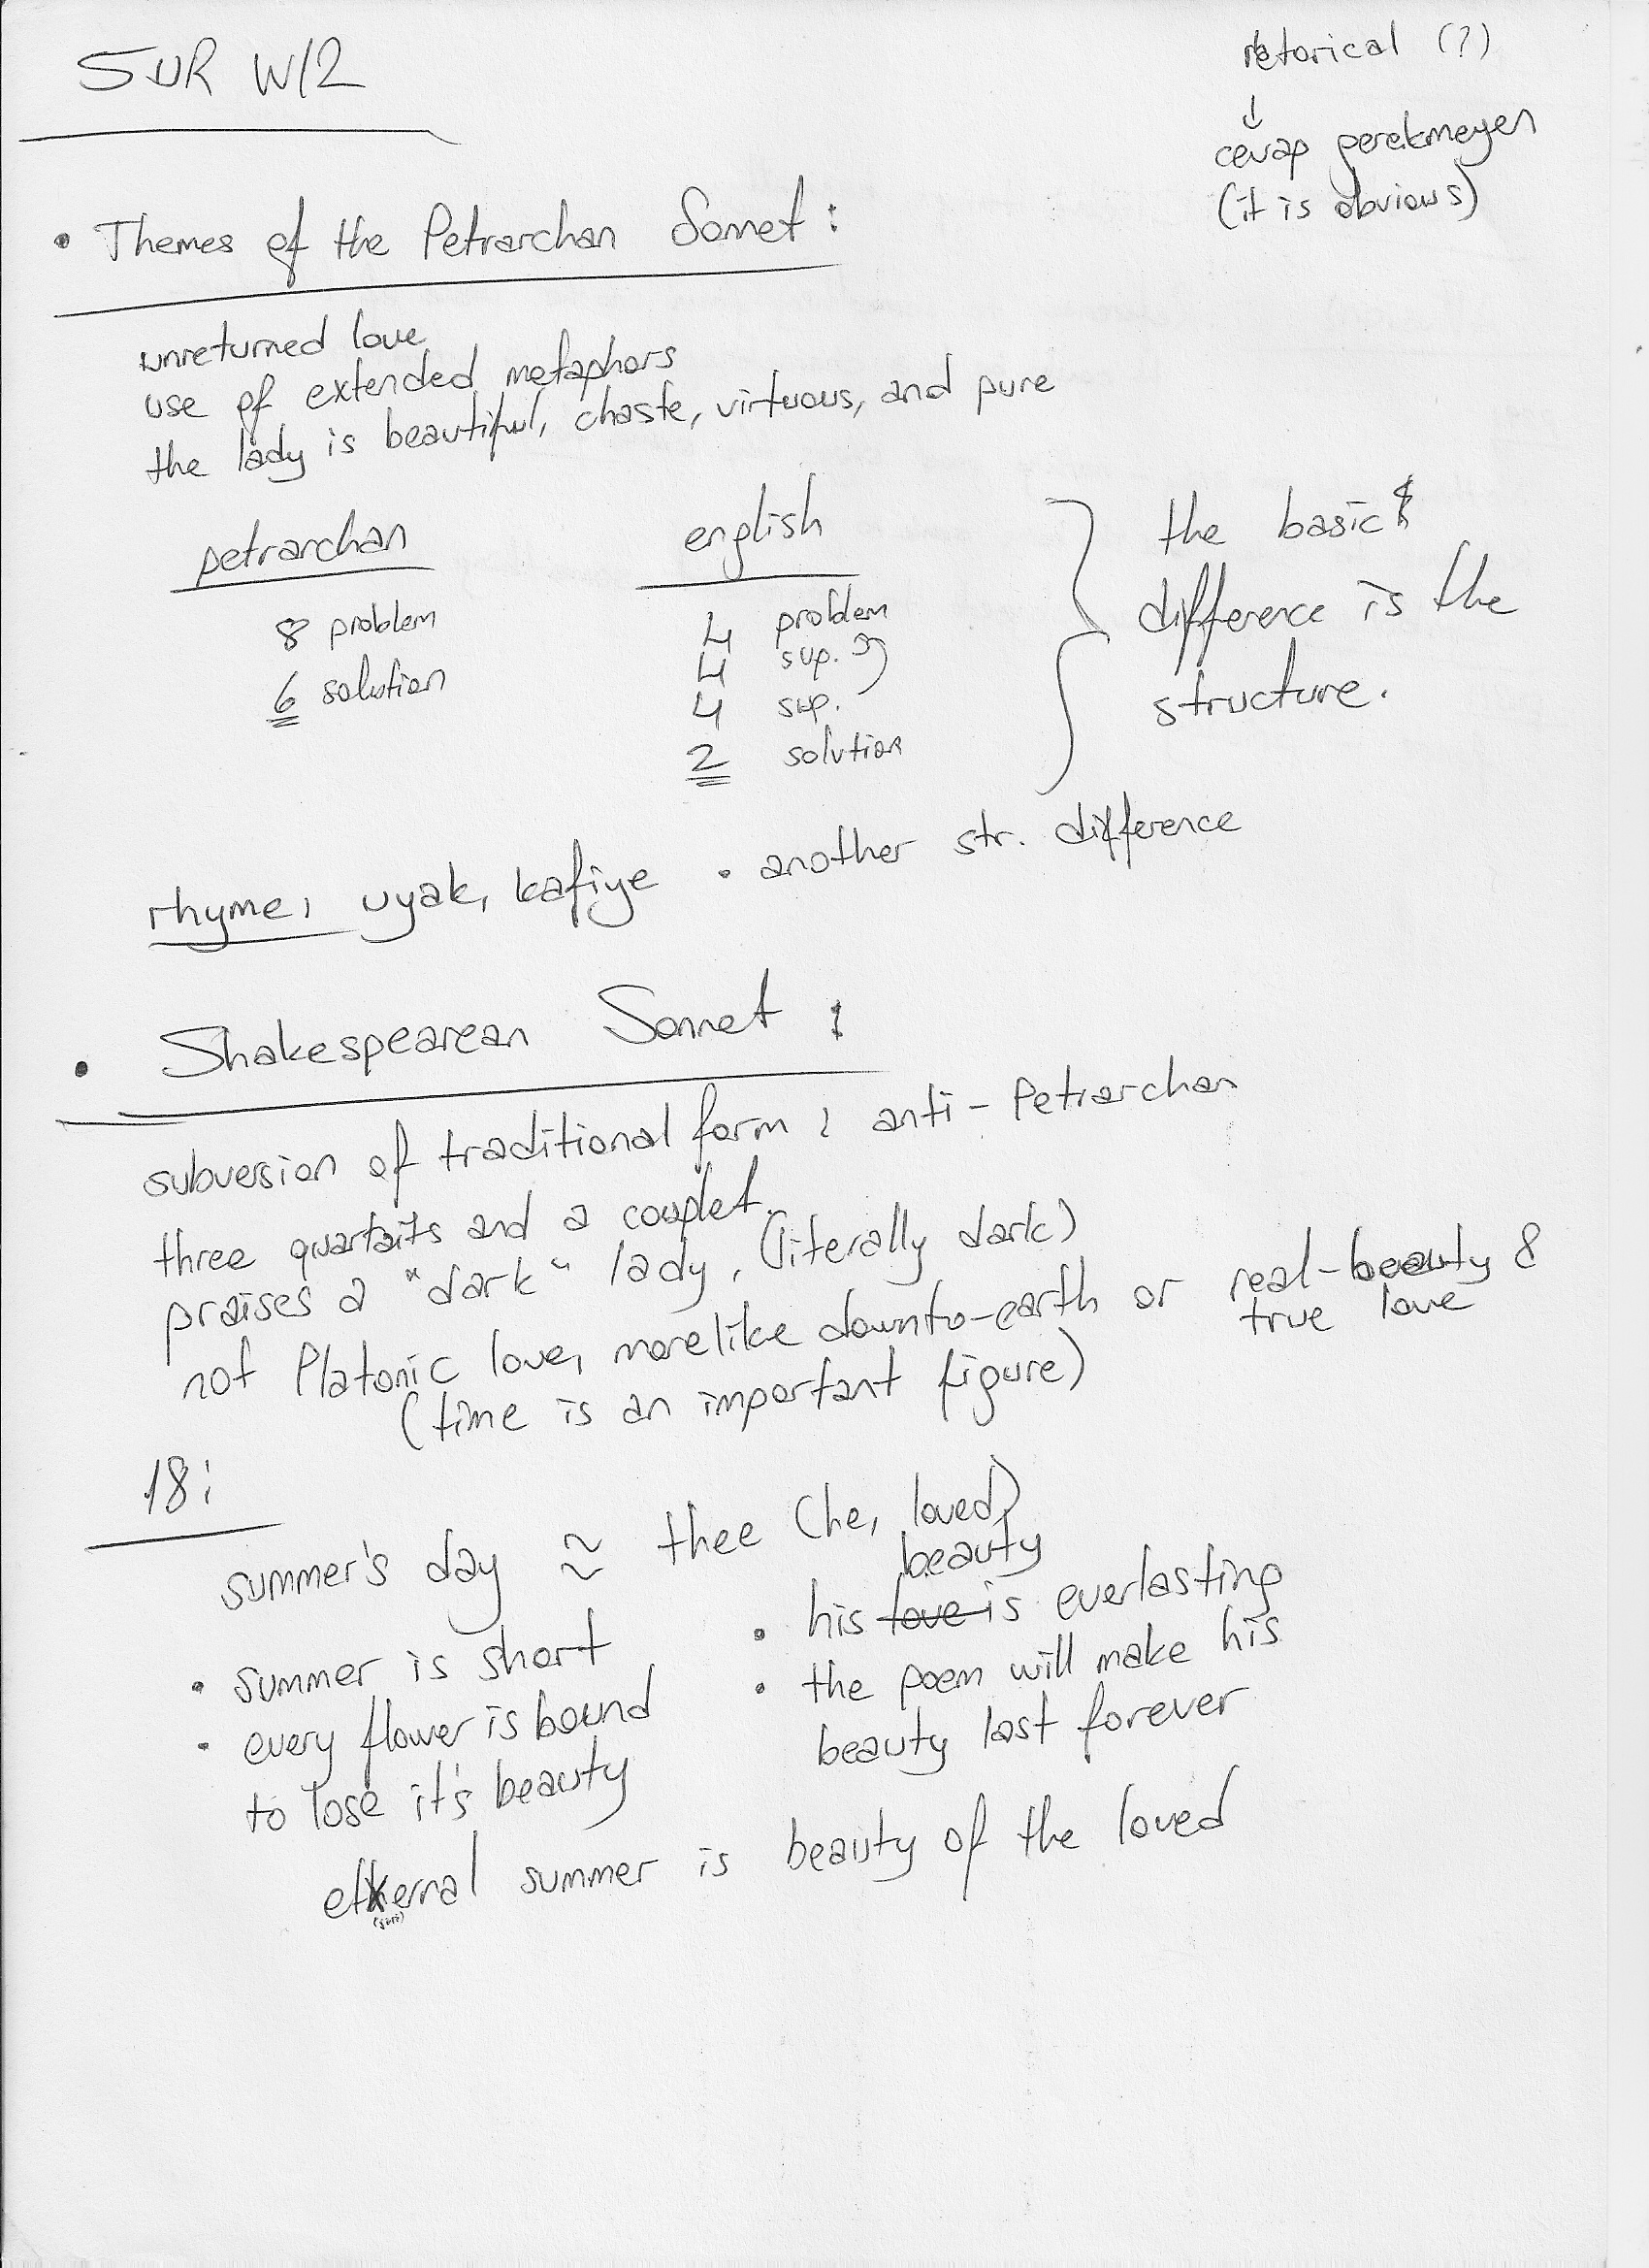 SUR W/2
retorical (?)
↓
cevap gerekmeyen
(it is obvious)
• Themes of the Petrarchan Sonnet:
unreturned love
use of extended metaphors
the lady is beautiful, chaste, virtuous, and pure
petrarchan
8 problem
6 solution
english
4 problem
4 sup.
4 sup.
2 solution
the basic
difference is the
structure.
rhyme, uyak, kafiye • another str. difference
• Shakespearean Sonnet:
subversion of traditional form: anti-Petrarchan
three quartaits and a couplet.
praises a "dark" lady, (literally dark)
not Platonic love, more like down to-earth or real-beauty &
true love
(time is an important figure)
18:
summer's day ≈ thee (he, loved)
• summer is short
• every flower is bound
to lose it's beauty
beauty
• his love is everlasting
• the poem will make his
beauty last forever
eternal summer is beauty of the loved